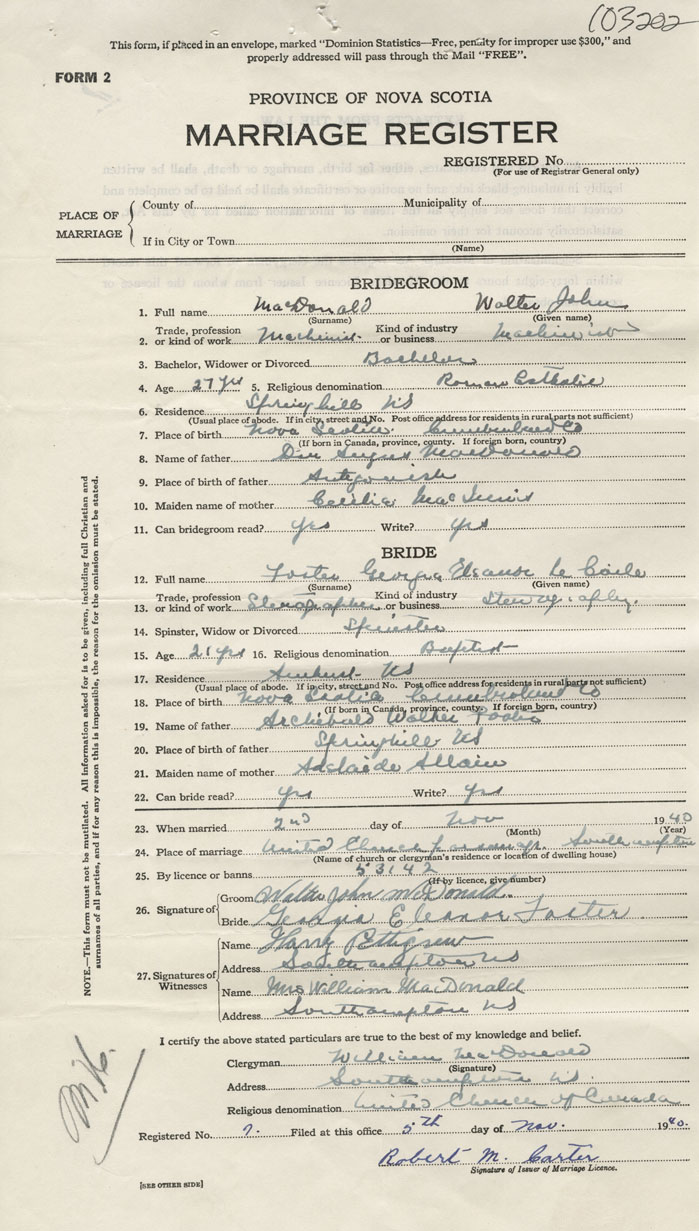 103202
This form, if placed in an envelope, marked "Dominion Statistics—Free, penalty for improper use $300," and
properly addressed will pass through the Mail "FREE".
FORM 2
PROVINCE OF NOVA SCOTIA
MARRIAGE REGISTER
REGISTERED No.
(For use of Registrar General only)
PLACE OF MARRIAGE
County of Municipality of
If in City or Town
(Name)
BRIDEGROOM
1. Full name MacDonald Walter John
(Surname) (Given name)
2. Trade, profession or kind of work Machinist Kind of industry or business
3. Bachelor, Widower or Divorced Bachelor
4. Age 27 yrs 5. Religious denomination Roman Catholic
6. Residence Springhill NS
(Usual place of abode. If in city, street and No. Post office address for residents in rural parts not sufficient)
7. Place of birth Nova Scotia Cumberland Co
(If born in Canada, province, county. If foreign born, country)
8. Name of father Dan Angus MacDonald
9. Place of birth of father Antigonish
10. Maiden name of mother Cecilia MacInnis
11. Can bridegroom read? yes Write? yes
BRIDE
12. Full name Foster Georgia Eleanor Le
(Surname) (Given name)
13. Trade, profession or kind of work Stenographer Kind of industry or business
14. Spinster, Widow or Divorced Spinster
15. Age 21 yrs 16. Religious denomination Baptist
17. Residence Amherst NS
(Usual place of abode. If in city, street and No. Post office address for residents in rural parts not sufficient)
18. Place of birth Nova Scotia Cumberland Co
(If born in Canada, province, county. If foreign born, country)
19. Name of father Archibald Walter Foster
20. Place of birth of father Springhill NS
21. Maiden name of mother Adelaide Allain
22. Can bride read? yes Write? yes
23. When married 2nd day of Nov 1940
(Month) (Year)
24. Place of marriage United Church parsonage Southampton
(Name of church or clergyman's residence or location of dwelling house)
25. By licence or banns 53142
(If by licence, give number)
26. Signature of
Groom Walter John McDonald.
Bride Georgia Eleanor Foster
27. Signatures of Witnesses
Name Harry Pettigrew
Address Southampton NS
Name Mrs William MacDonald
Address Southampton NS
I certify the above stated particulars are true to the best of my knowledge and belief.
Clergyman William MacDonald
(Signature)
Address Southampton NS.
Religious denomination United Church of Canada
Registered No. 7. Filed at this office 5th day of Nov. 1940.
Robert M. Carter
Signature of Issuer of Marriage Licence.
[SEE OTHER SIDE]
NOTE.—This form must not be mutilated. All information asked for is to be given, including full Christian and
surnames of all parties, and if for any reason this is impossible, the reason for the omission must be stated.